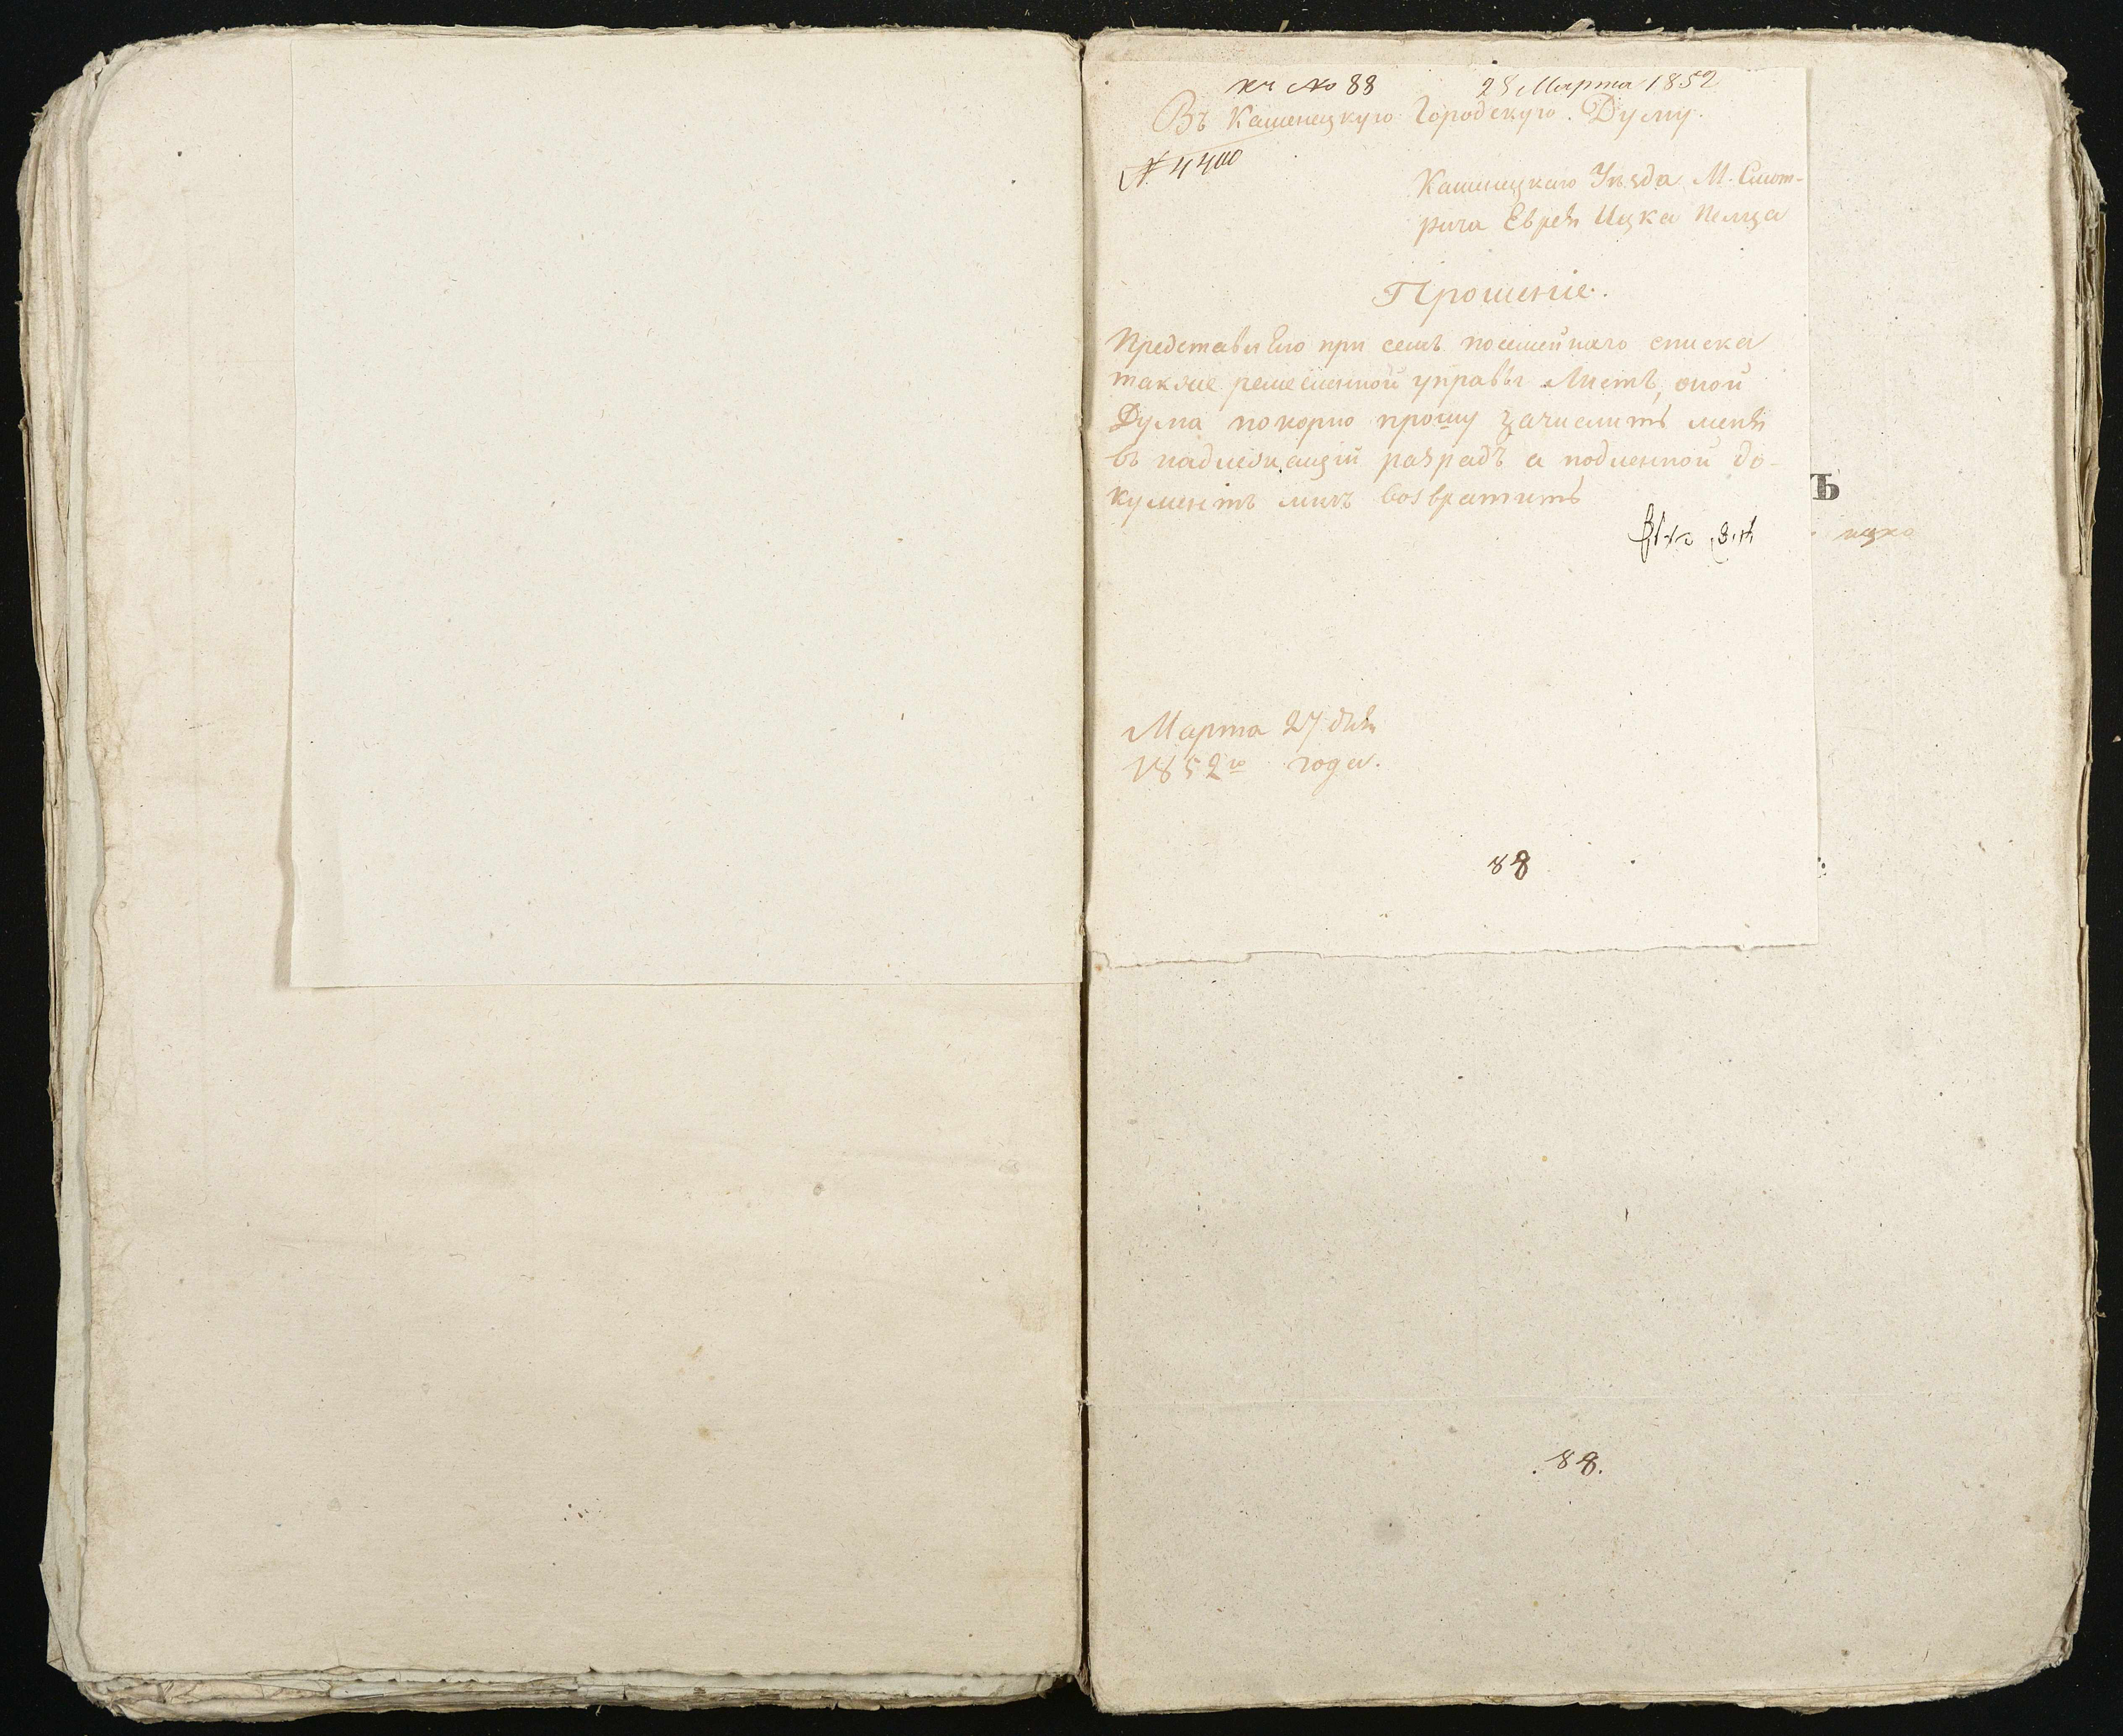 кг № 88 28 Марта 1852
Въ Каменецкую Городскую Думу.
№ 4400
Каменецкаго Уѣзда М. Смот-
рича Еврея Ицка Пелца
Прошеніе.
Представляю при семъ посемейнаго списка
также ремесленной управы Листъ, оной
Дума покорно прошу зачислить меня
въ надлежащій разрадъ а подленной до-
кументъ мнѣ возвратить
Марта 27 дня
1852го года.
88
Ъ
ицко
88.